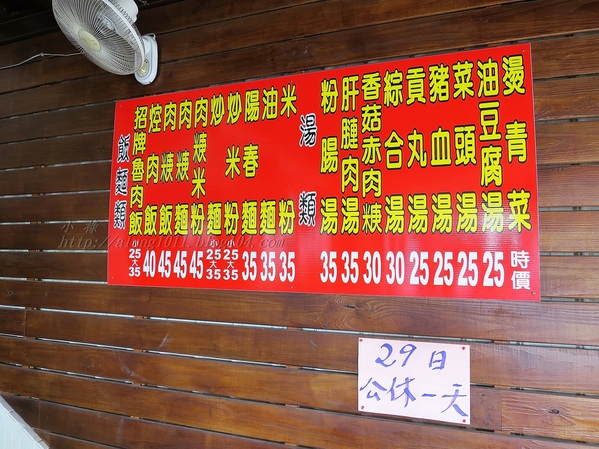 飯麵類
招牌魯肉飯 小25大35
焢肉飯 40
肉焿飯 45
肉焿麵 45
肉焿米粉 45
炒麵 小25大35
炒米粉 小25大35
陽春麵 35
油麵 35
米粉 35
湯類
粉腸湯 35
肝腱肉湯 35
香菇赤肉焿 30
綜合湯 30
貢丸湯 25
豬血湯 25
菜頭湯 25
油豆腐湯 25
燙青菜 時價
29日
公休一天